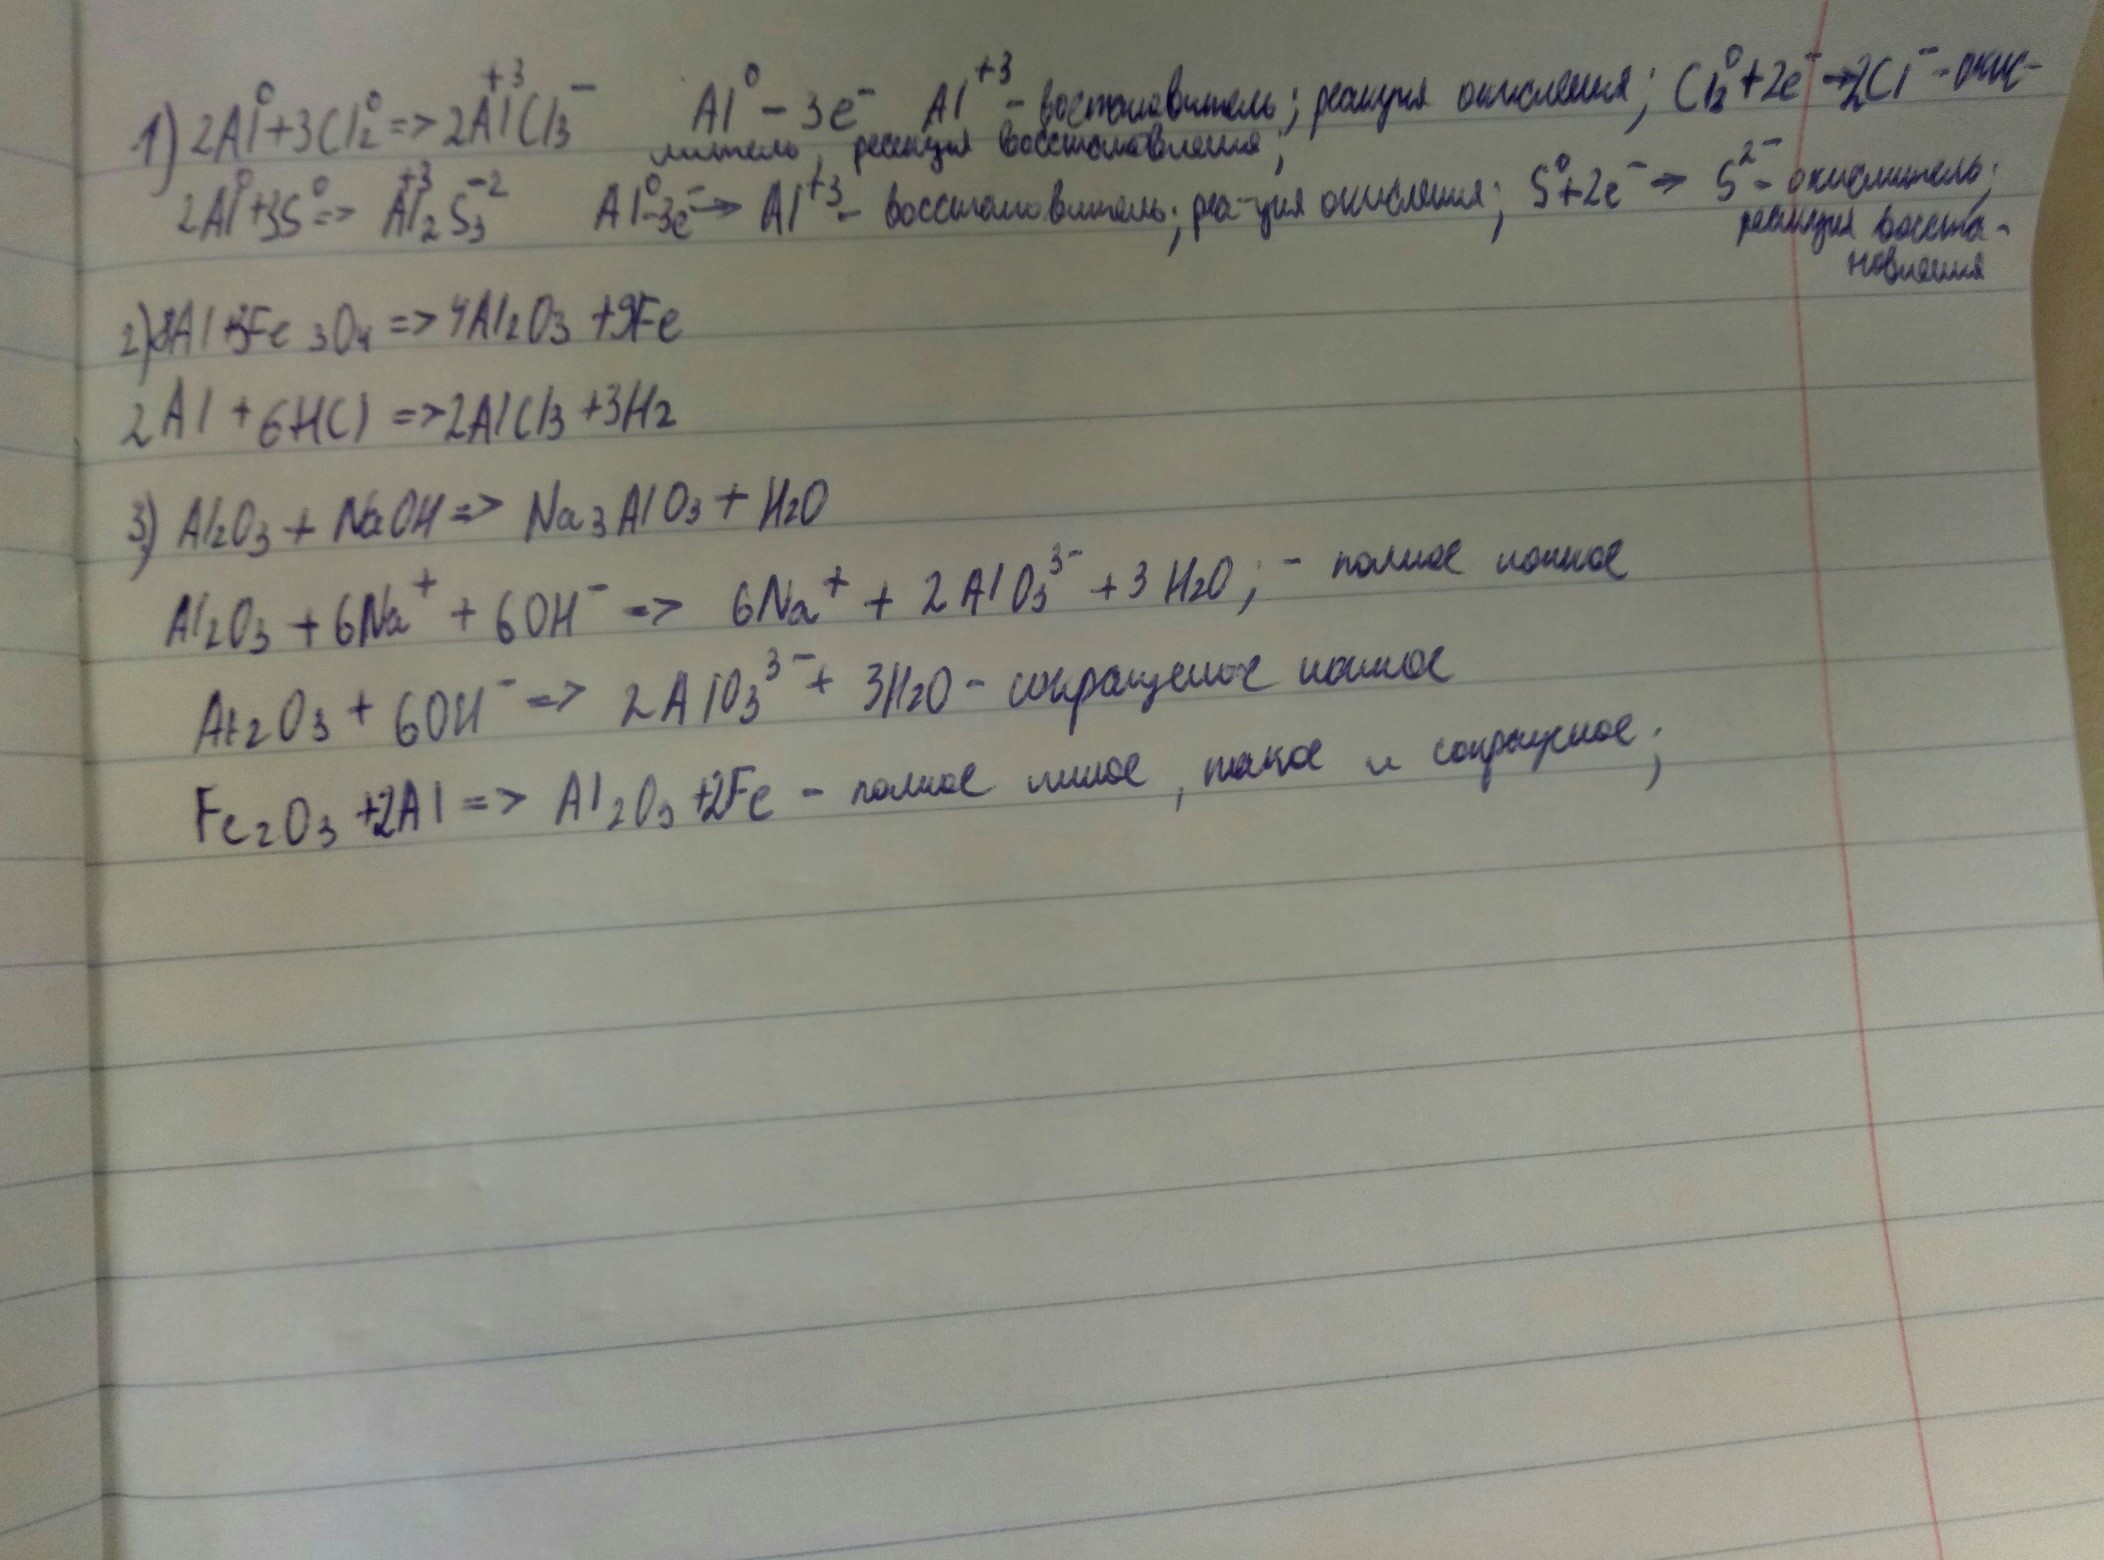 1) 2Al⁰+3Cl₂⁰=>2Al⁺³Cl₃⁻ Al⁰-3e⁻ Al⁺³-востановитель; реакция окисления; Cl₂⁰+2e⁻→2Cl⁻-окис-
литель, реакция восстановления;
2Al⁰+3S⁰=> Al₂⁺³S₃⁻² Al⁰-3e⁻→ Al⁺³- восстановитель; реа-ция окисления; S⁰+2e⁻→ S²⁻- окислитель;
реакция восста-
новления
2) 8Al+3Fe₃O₄=>4Al₂O₃+9Fe
2Al+6HCl=>2AlCl₃+3H₂
3) Al₂O₃+NaOH=> Na₃AlO₃+H₂O
Al₂O₃+6Na⁺+6OH⁻=> 6Na⁺+2AlO₃³⁻+3H₂O; - полное ионное
Al₂O₃+6OH⁻=> 2AlO₃³⁻+3H₂O- сокращеное ионное
Fe₂O₃+2Al=> Al₂O₃+2Fe - полное иное, такое и сокращеное;